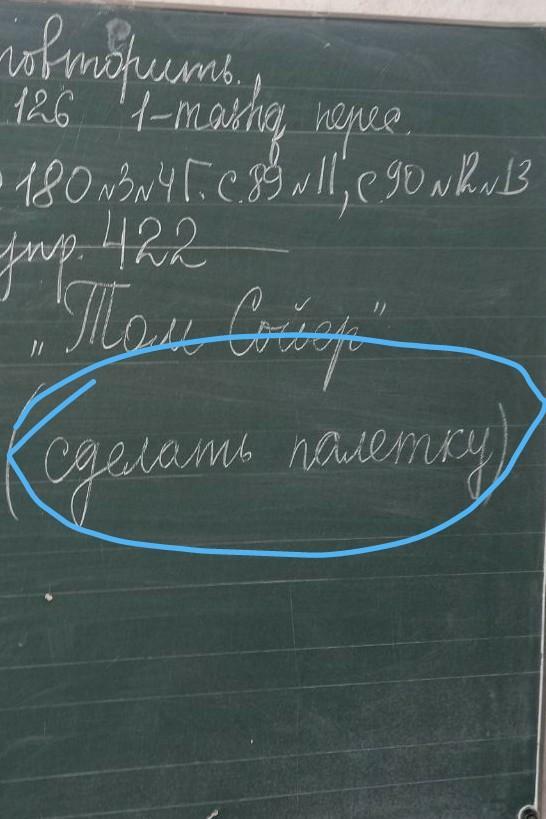 повторить.
126 1-тапқ перес.
180 №3 №4 Г. с.89 №11, с.90 №12 №13
упр. 422
„Том Сойер"
(сделать палетку)